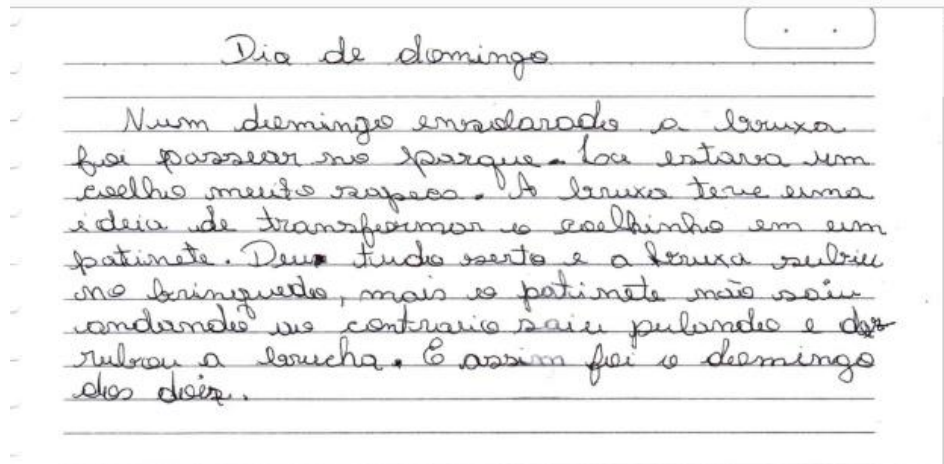 Dia de domingo
Num domingo ensolarado a bruxa
foi passear no parque. La estava um
coelho muito sapeca. A bruxa teve uma
ideia de transformar o coelhinho em um
patinete. Deu tudo serto e a bruxa subiu
no brinquedo, mais o patinete não saiu
andando ao contrario saiu pulando e der
rubrou a brucha. E assim foi o domingo
dos doiz.